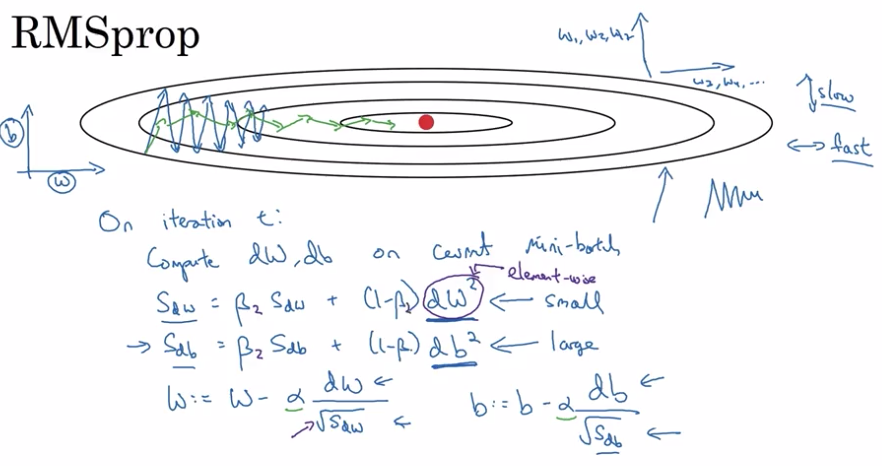 RMSprop
w₁, w₂, w₂
w₃, w₄, ...
slow
fast
b
w
On iteration t:
Compute dW, db on current mini-batch
element-wise
S_dw = β₂ S_dw + (1-β₂) dW² ← small
→ S_db = β₂ S_db + (1-β₂) db² ← large
W := W - α dw/√S_dw ← b := b - α db/√S_db ←